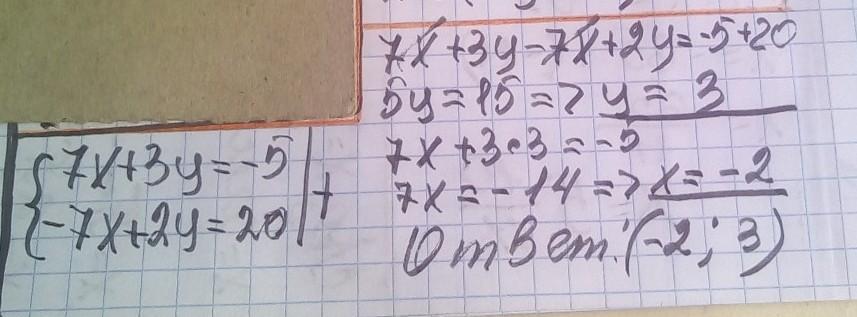 7x+3y=-5 | +
-7x+2y=20
7x+3y-7x+2y=-5+20
5y=15=>y=3
7x+3·3=-5
7x=-14=>x=-2
Ответ:(-2;3)